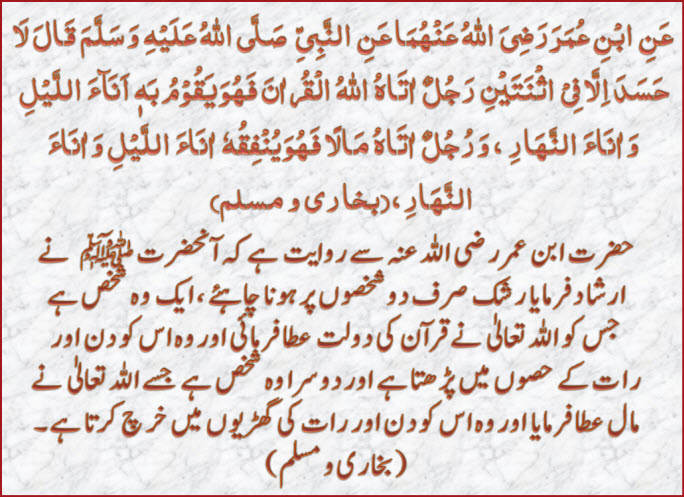 عَنِ ابْنِ عُمَرَ رَضِیَ اللهُ عَنْهُمَا عَنِ النَّبِیِّ صَلَّی اللهُ عَلَیْهِ وَسَلَّمَ قَالَ لَا
حَسَدَ اِلَّا فِیْ اثْنَتَیْنِ رَجُلٌ اٰتَاهُ اللهُ الْقُرْاٰنَ فَهُوَ یَقُوْمُ بِهٖ اٰنَآءَ اللَّیْلِ
وَ اٰنَاءَ النَّهَارِ ، وَرَجُلٌ اٰتَاهُ مَالًا فَهُوَ یُنْفِقُهٗ اٰنَاءَ اللَّیْلِ وَ اٰنَاءَ
النَّهَارِ ، (بخاری و مسلم)
حضرت ابن عمر رضی اللہ عنہ سے روایت ہے کہ آنحضرت ﷺ نے
ارشاد فرمایا رشک صرف دو شخصوں پر ہونا چاہئے ، ایک وہ شخص ہے
جس کو اللہ تعالیٰ نے قرآن کی دولت عطا فرمائی اور وہ اس کو دن اور
رات کے حصوں میں پڑھتا ہے اور دوسرا وہ شخص ہے جسے اللہ تعالیٰ نے
مال عطا فرمایا اور وہ اس کو دن اور رات کی گھڑیوں میں خرچ کرتا ہے۔
(بخاری و مسلم)